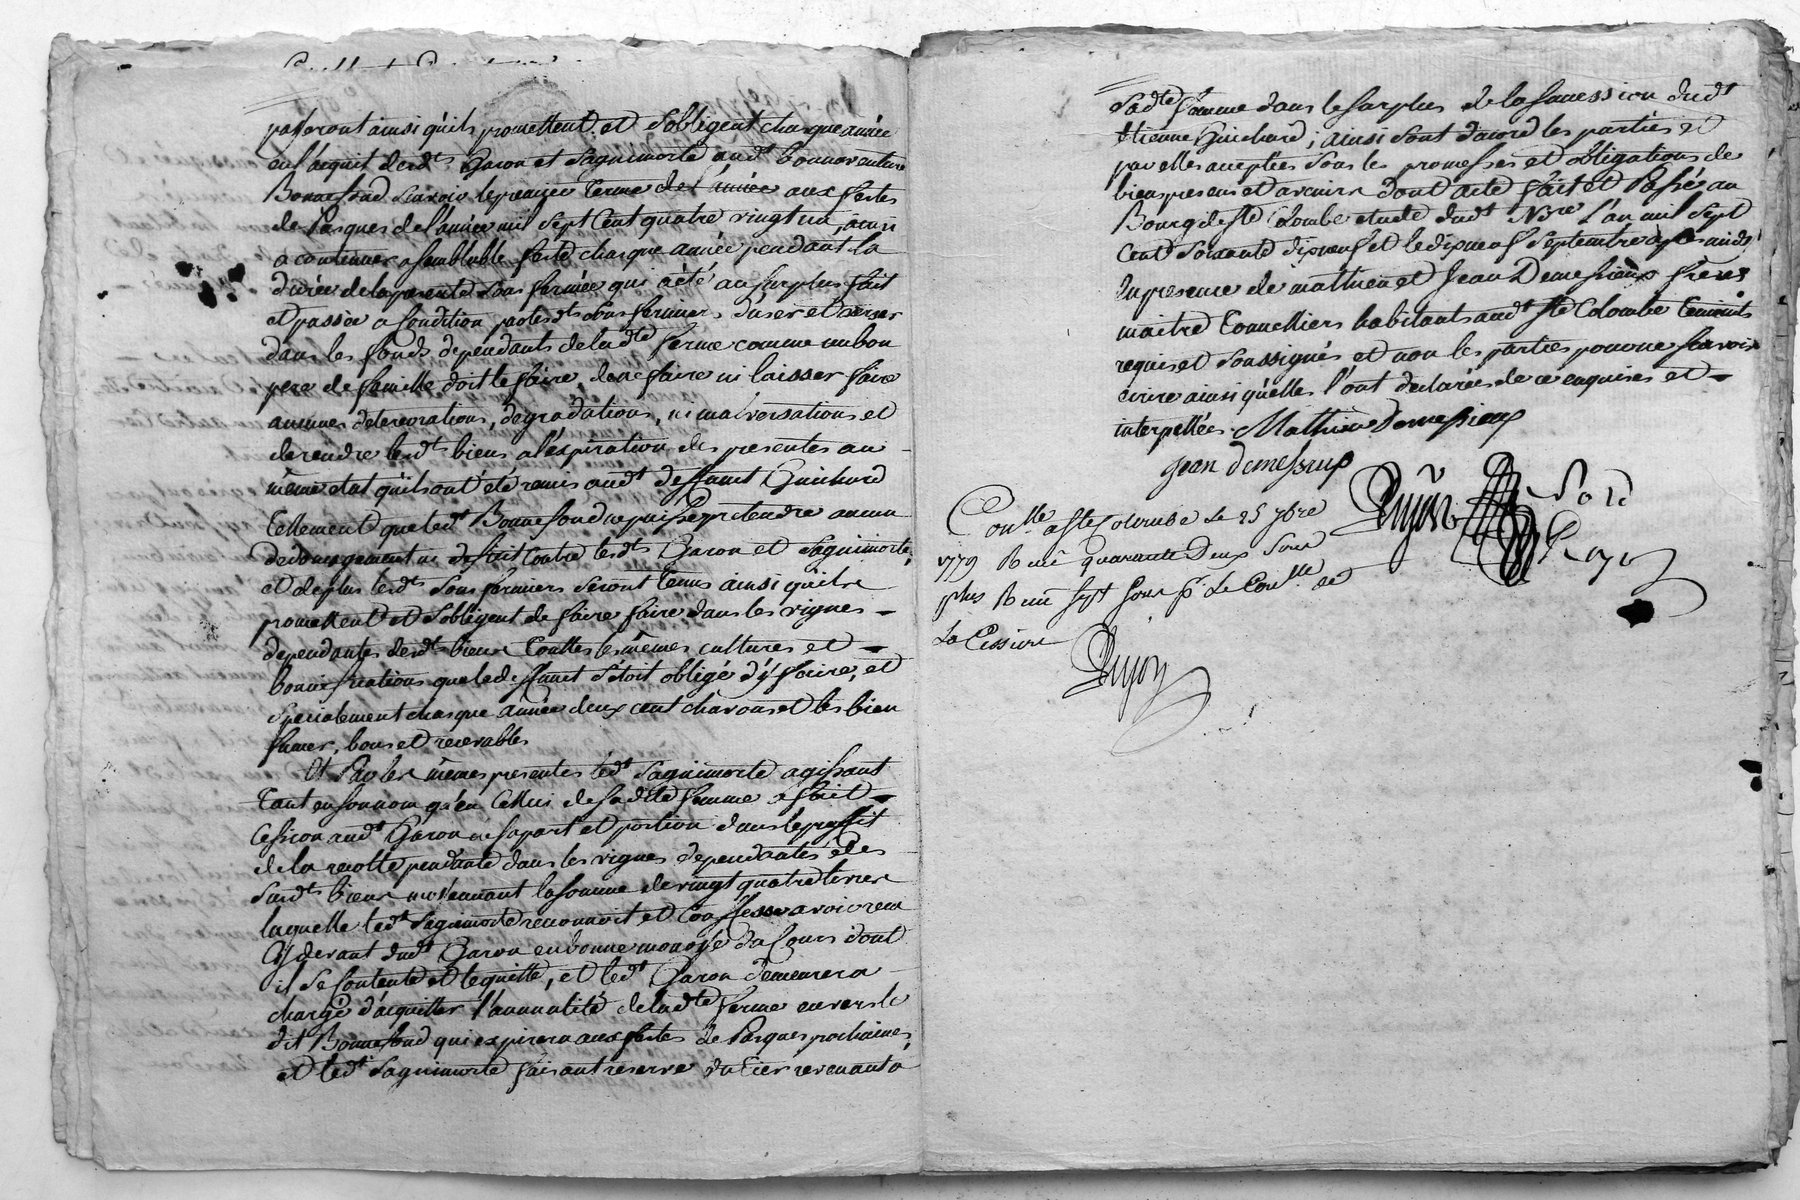 payeront ainsi qu'ils promettent et s'obligent chaque année
en l'acquit desdts Garon et Saguimorte audt bonnaventure
Bonnefond scavoir le premier terme de l'année aux festes
de Pasques de l'année mil sept cent quatre vingt un, ainsi
a continuer a semblable feste chaque année pendant la
durée de la presente sous fermée qui a été au surplus fait
et passée a condition par lesdts sous fermiers d'user et verser
dans les fonds dependants de ladte ferme comme un bon
pere de famille doit le faire, de ne faire ni laisser faire
aucunes deterorations, degradations, ni malversations et
de rendre lesdts biens a l'expiration des presentes au
même etat qu'ils ont été remis audt deffunt Guichard
tellement que ledt Bonnefond ne puisse pretendre aucun
dedomagement ni deffaut contre lesdts Garon et Saguimorte,
et de plus lesdts sous fermiers seront tenus ainsi qu'ils
promettent et s'obligent de faire faire dans les vignes
dependantes desdts biens toutes les mêmes cultures et
bonnifications que led deffunt s'étoit obligé d'y faire, et
specialement chaque année deux cent chavons et les bien
fumer, bons et recevables
Et Par les mêmes presentes ledt Saguimorte agissant
tant en son nom qu'en cellui de sadite femme a fait
cession audt Garon de sa part et portion dans le proffit
de la recolte pendante dans les vignes dependantes des
susdt biens moyennant la somme de vingt quatre livres
laquelle ledt Saguimorte reconnoit et confesse avoir recu
cy devant dudt Garon en bonne monoye du cours dont
il se contente et le quitte, et ledt Garon demeurera
chargé d'acquitter l'annualité de ladte ferme envers le
dit Bonnefond qui expirera aux festes de Pasques prochaines,
et ledt Saguimorte faisant reserve du tier revenant a
sadte femme dans le surplus de la succession dudt
Etienne Guichard; ainsi sont d'acord les parties et
par elles acceptées sous les promesses et obligations de
biens presens et avenirs dont acte fait et Passé au
Bourg de Ste Colombe etude dudt Nore l'an mil sept
cent soixante dixneuf et le dixneuf septembre après midy
en presence de mathieu et Jean Demessieux freres
maitre tonnelliers habitants audt Ste Colombe temoins
requis et soussignés et non les parties pour ne scavoir
ecrire ainsi qu'elles l'ont declarées de ce enquises et
interpellées. Mathieu Demessieux
jean demessieux
Conlle a Ste Colombe le 25 7bre
1779 Recu quarante Deux sous
plus Recu sept sous pr le conlle de
La Cession
Dujon